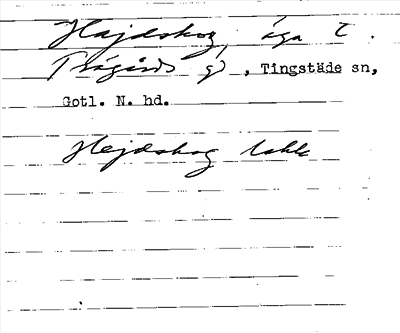 Hajdskog, äga t.
Trägårds g) , Tingstäde sn,
Gotl. N. hd.
Hejdskog